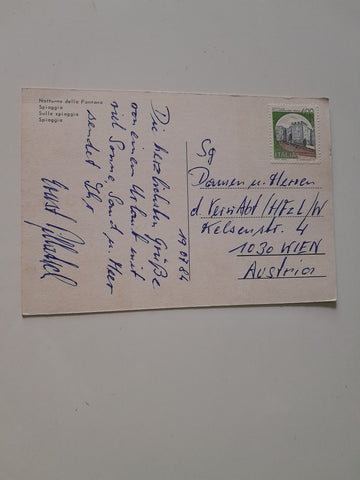 Notturno della Fontana
Spiaggia
Sulla spiaggia
Spiaggia
Die herzlichsten Grüße
von einem Urlaub mit
viel Sonne, Sand u. Meer
sendet Ihr
Ernst
19 07 84
600
ITALIA
Damen u. Herren
d. VersAbt/HFzL/W
Kelsenstr. 4
1030 WIEN
Austria